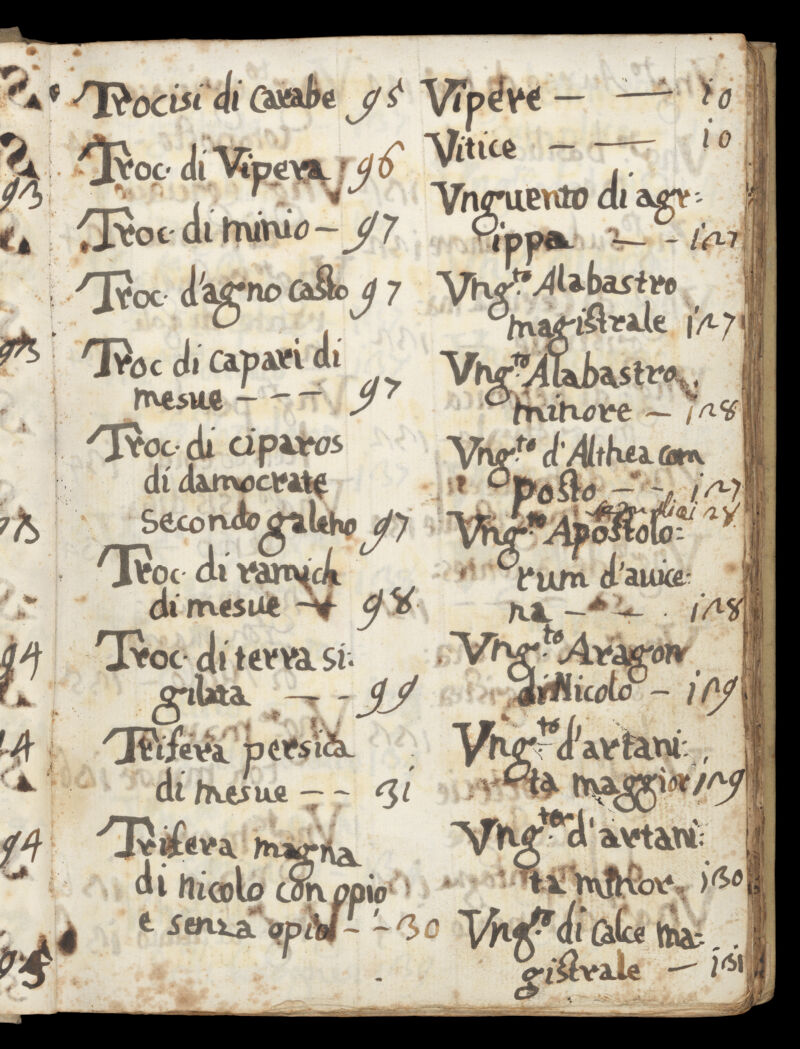 Trocisi di Carabe 95
Troc. di Vipera 96
Troc. di minio – 97
Troc. d'agno casto 97
Troc di capari di
mesue – – – 97
Troc. di ciparos
di damocrate
secondo galeno 97
Troc. di ramich
di mesue – 98
Troc. di terra si:
gilata – – 99
Trifera persica
di mesue – – 3i
Trifera magna
di nicolo con opio
e senza opio – – 30
Vipere – — i0
Vitice – — i0
Vnguento di agr:
ippa – – i27
Vng.to Alabastro
magistrale i27
Vng.to Alabastro
minore – i28
Vng.to d'Althea com
posto – – i27
i28
Vng.to Apostolo:
rum d'auice:
na – – i28
Vng.to Aragon
di Nicolo – i29
Vng.to d'artani:
ta maggior i29
Vng.to d'artani:
ta minor i30
Vng.to di Calce ma:
gistrale – i3i
93
93
93
94
94
94
95